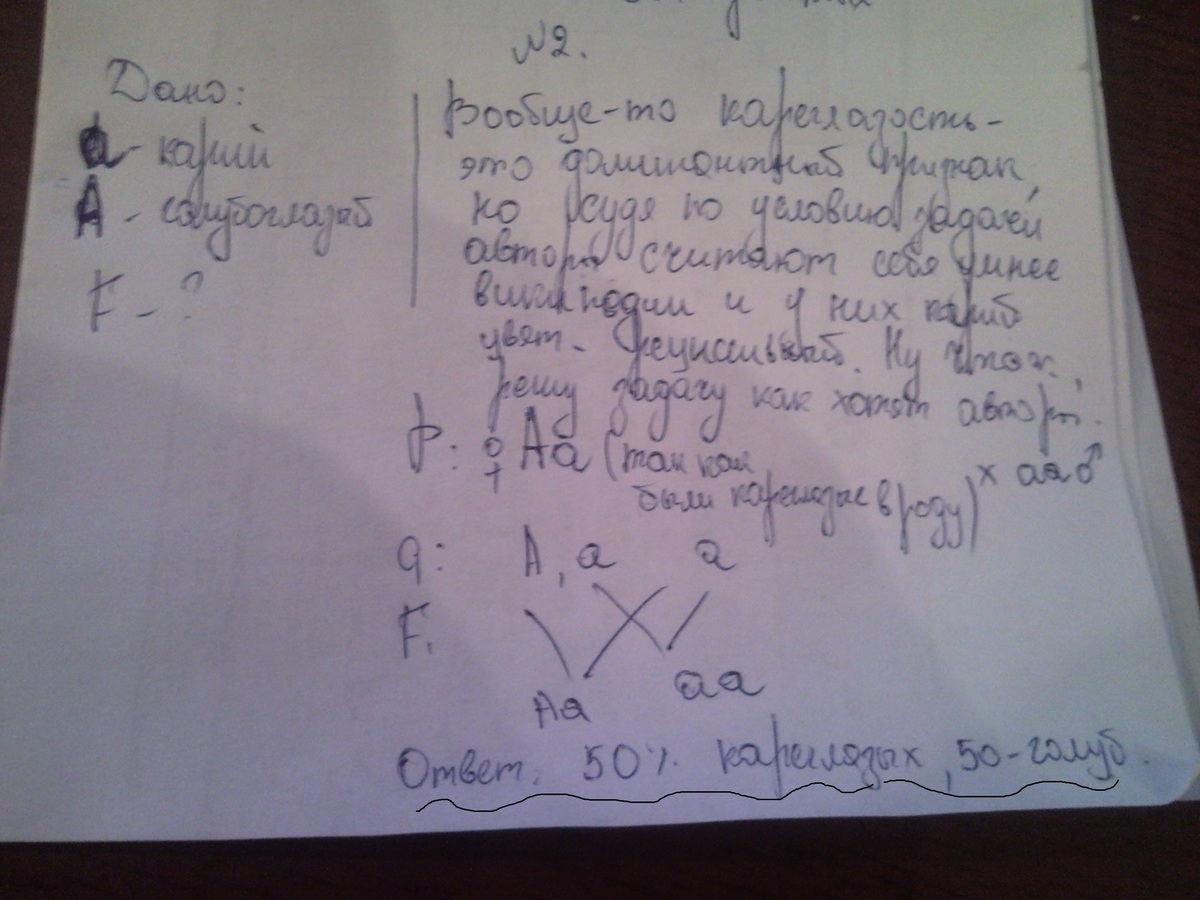 №2.
Дано:
а - карий
А - голубоглазый
F - ?
Вообще-то кареглазость -
это доминантный признак,
но судя по условию задачи
авторы считают себя умнее
википедии и у них карий
цвет - рецессивный. Ну что ж,
решу задачу как хотят авторы.
P: ♀ Аа (так как
были кареглазые в роду) х аа ♂
g: А, а а
F₁
Аа аа
Ответ: 50% кареглазых, 50-голуб.